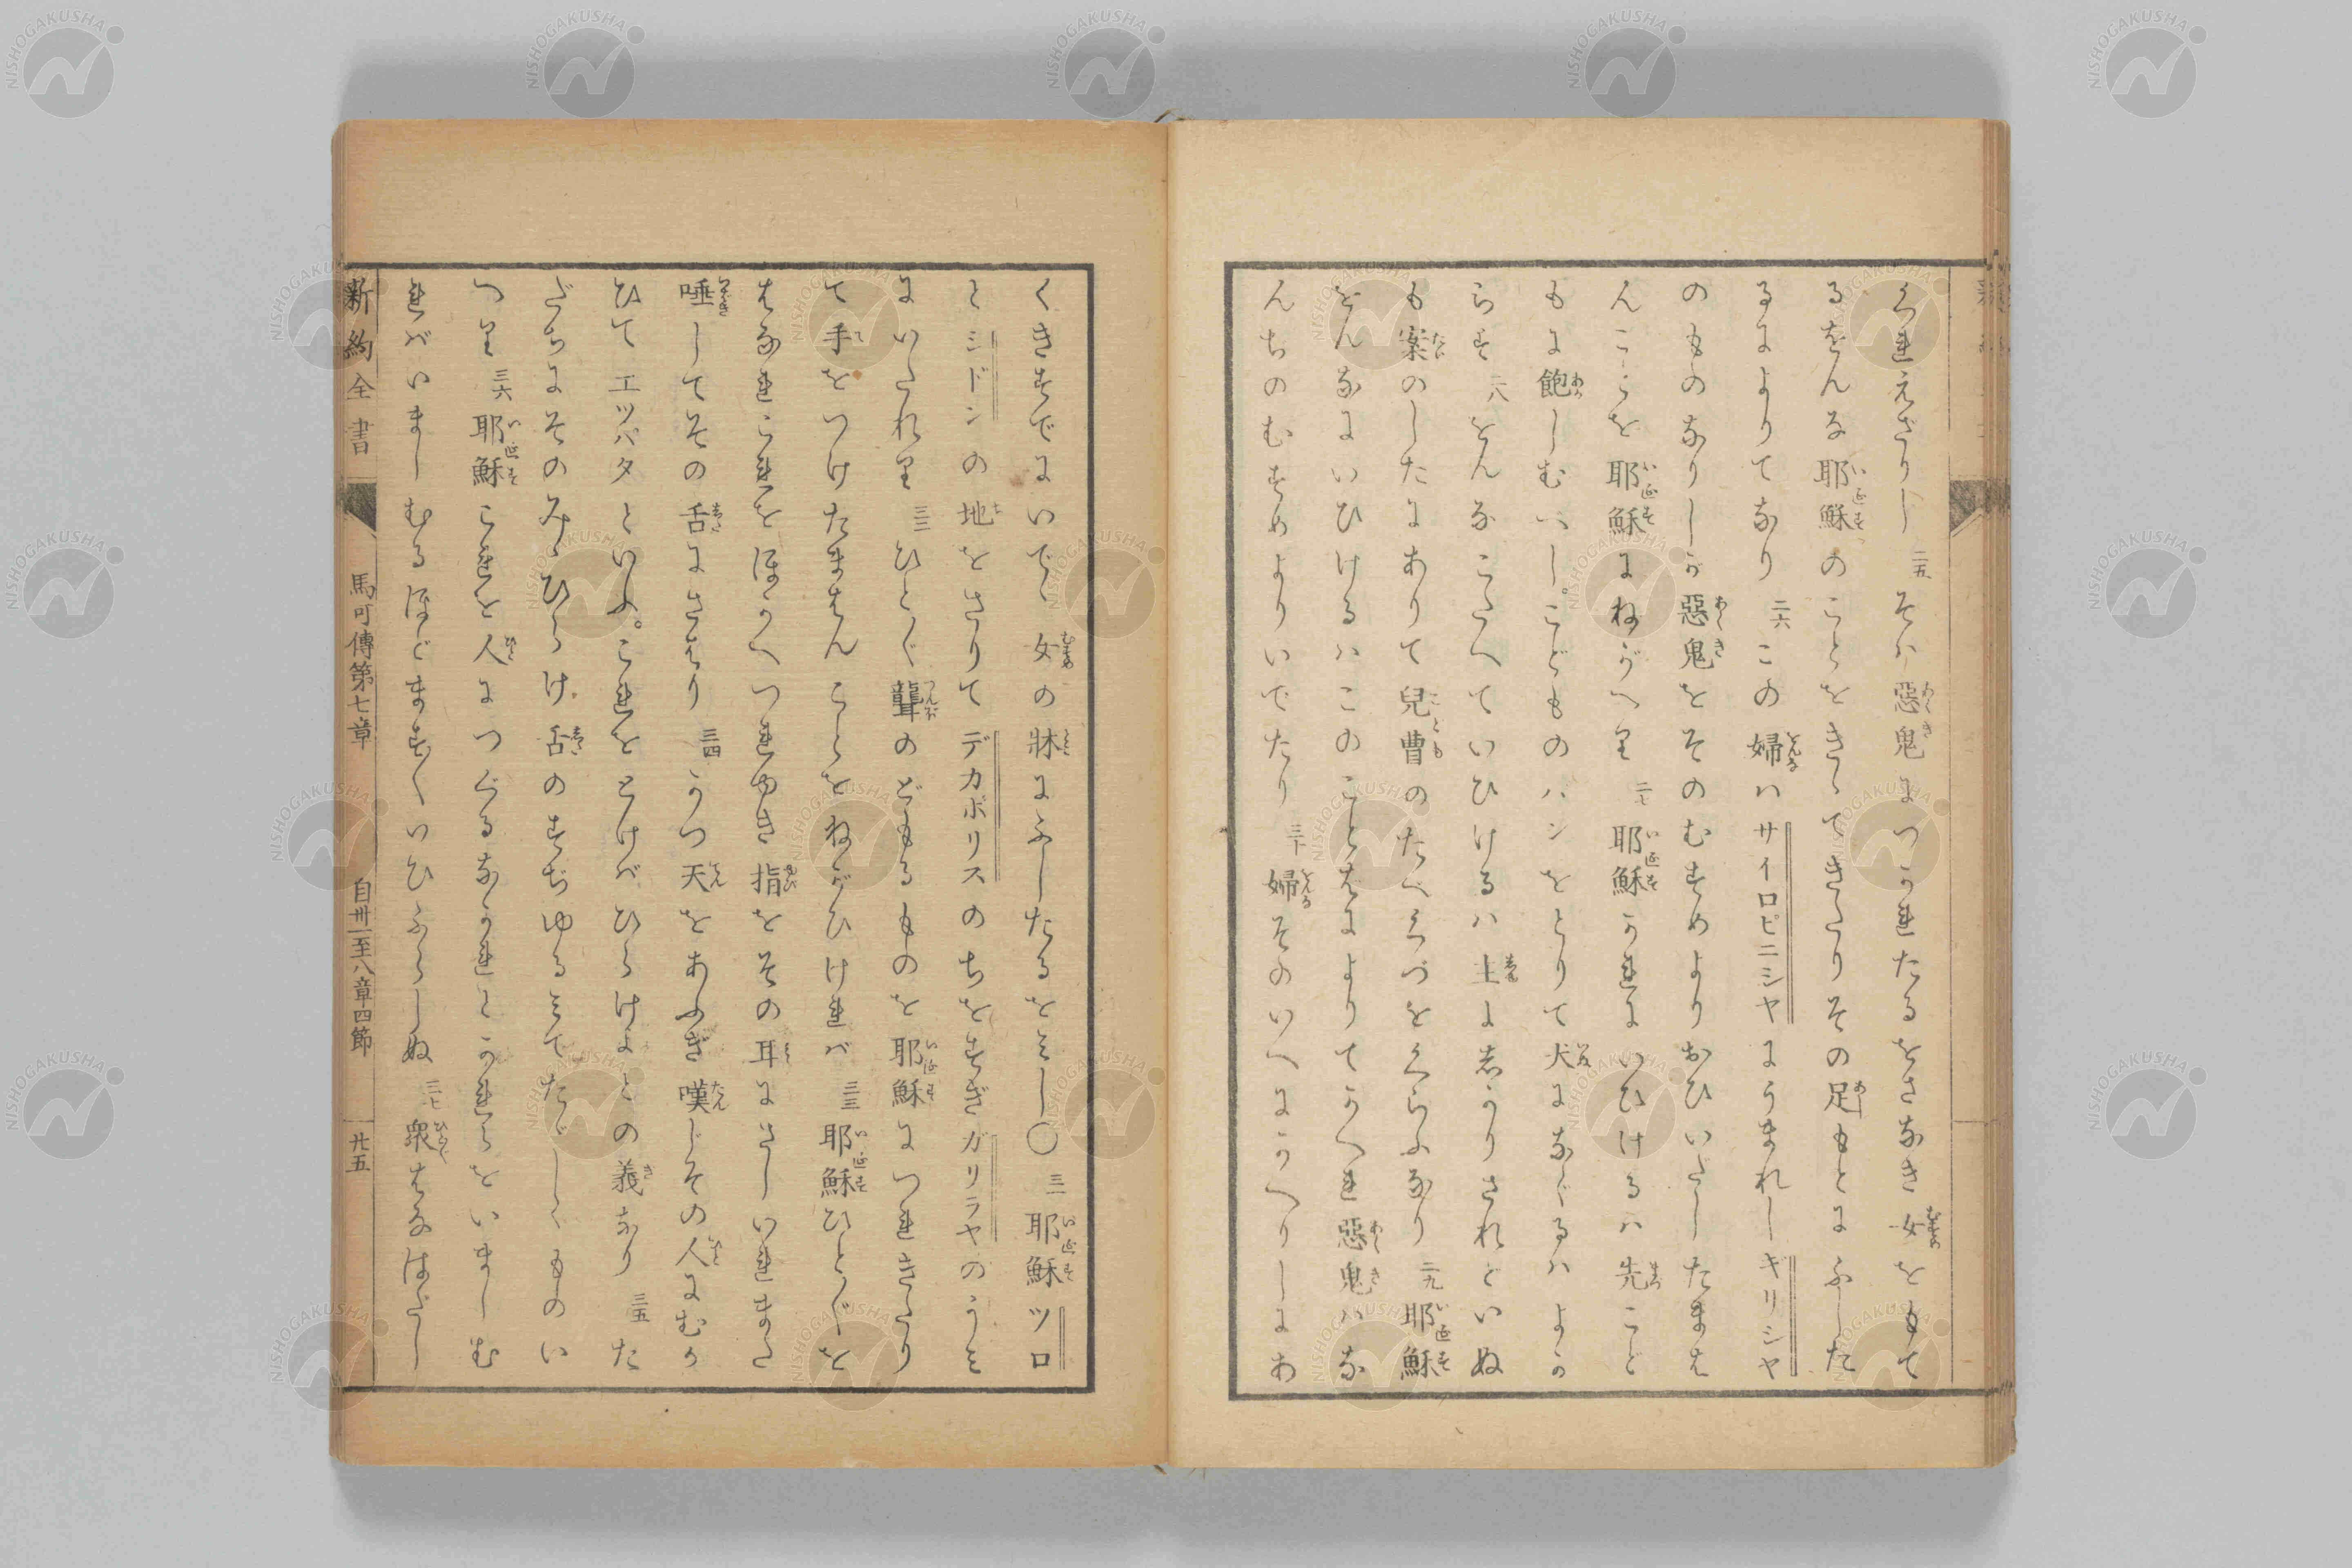 くれえざりし 二五 そハ惡鬼につかれたるをさなき女をもて
るをんな耶穌のことをきゝてきたりその足もとにふした
るによりてなり 二六 この婦ハサイロピニシヤにうまれしギリシヤ
のものなりしが惡鬼をそのむすめよりおひいだしたまは
んことを耶穌にねがへり 二七 耶穌かれにいひけるハ先こど
もに飽しむべし。こどものパンをとりて犬になぐるハよか
らず 二八 をんなこたへていひけるハ主よしかりされどいぬ
も案のしたにありて兒曹のたべくづをくらふなり 二九 耶穌
をんなにいひけるハこのことばによりてかへれ惡鬼ハな
んぢのむすめよりいでたり 三十 婦そのいへにかへりしにあ
くきすでにいでゝ女の牀にふしたるをみし〇 三一 耶穌ツロ
とシドンの地をさりてデカポリスのちをすぎガリラヤのうみ
にいたれり 三二 ひとゞ聾のどもるものを耶穌につれきたり
て手をつけたまはんことをねがひければ 三三 耶穌ひとゞを
はなれこれをほかへつれゆき指をその耳にさしいれまた
唾してその舌にさはり 三四 かつ天をあふぎ嘆じその人にむか
ひてエツパタといふ。これをとけばひらけよとの義なり 三五 た
だちにそのみゝひらけ舌のすぢゆるみてたゞしくものい
へり 三六 耶穌これを人につぐるなかれとかれらをいましむ
ればいましむるほどますますいひふらしぬ 三七 衆はなはだし
新約全書 馬可傳第七章 自卅一至八章四節 廿五